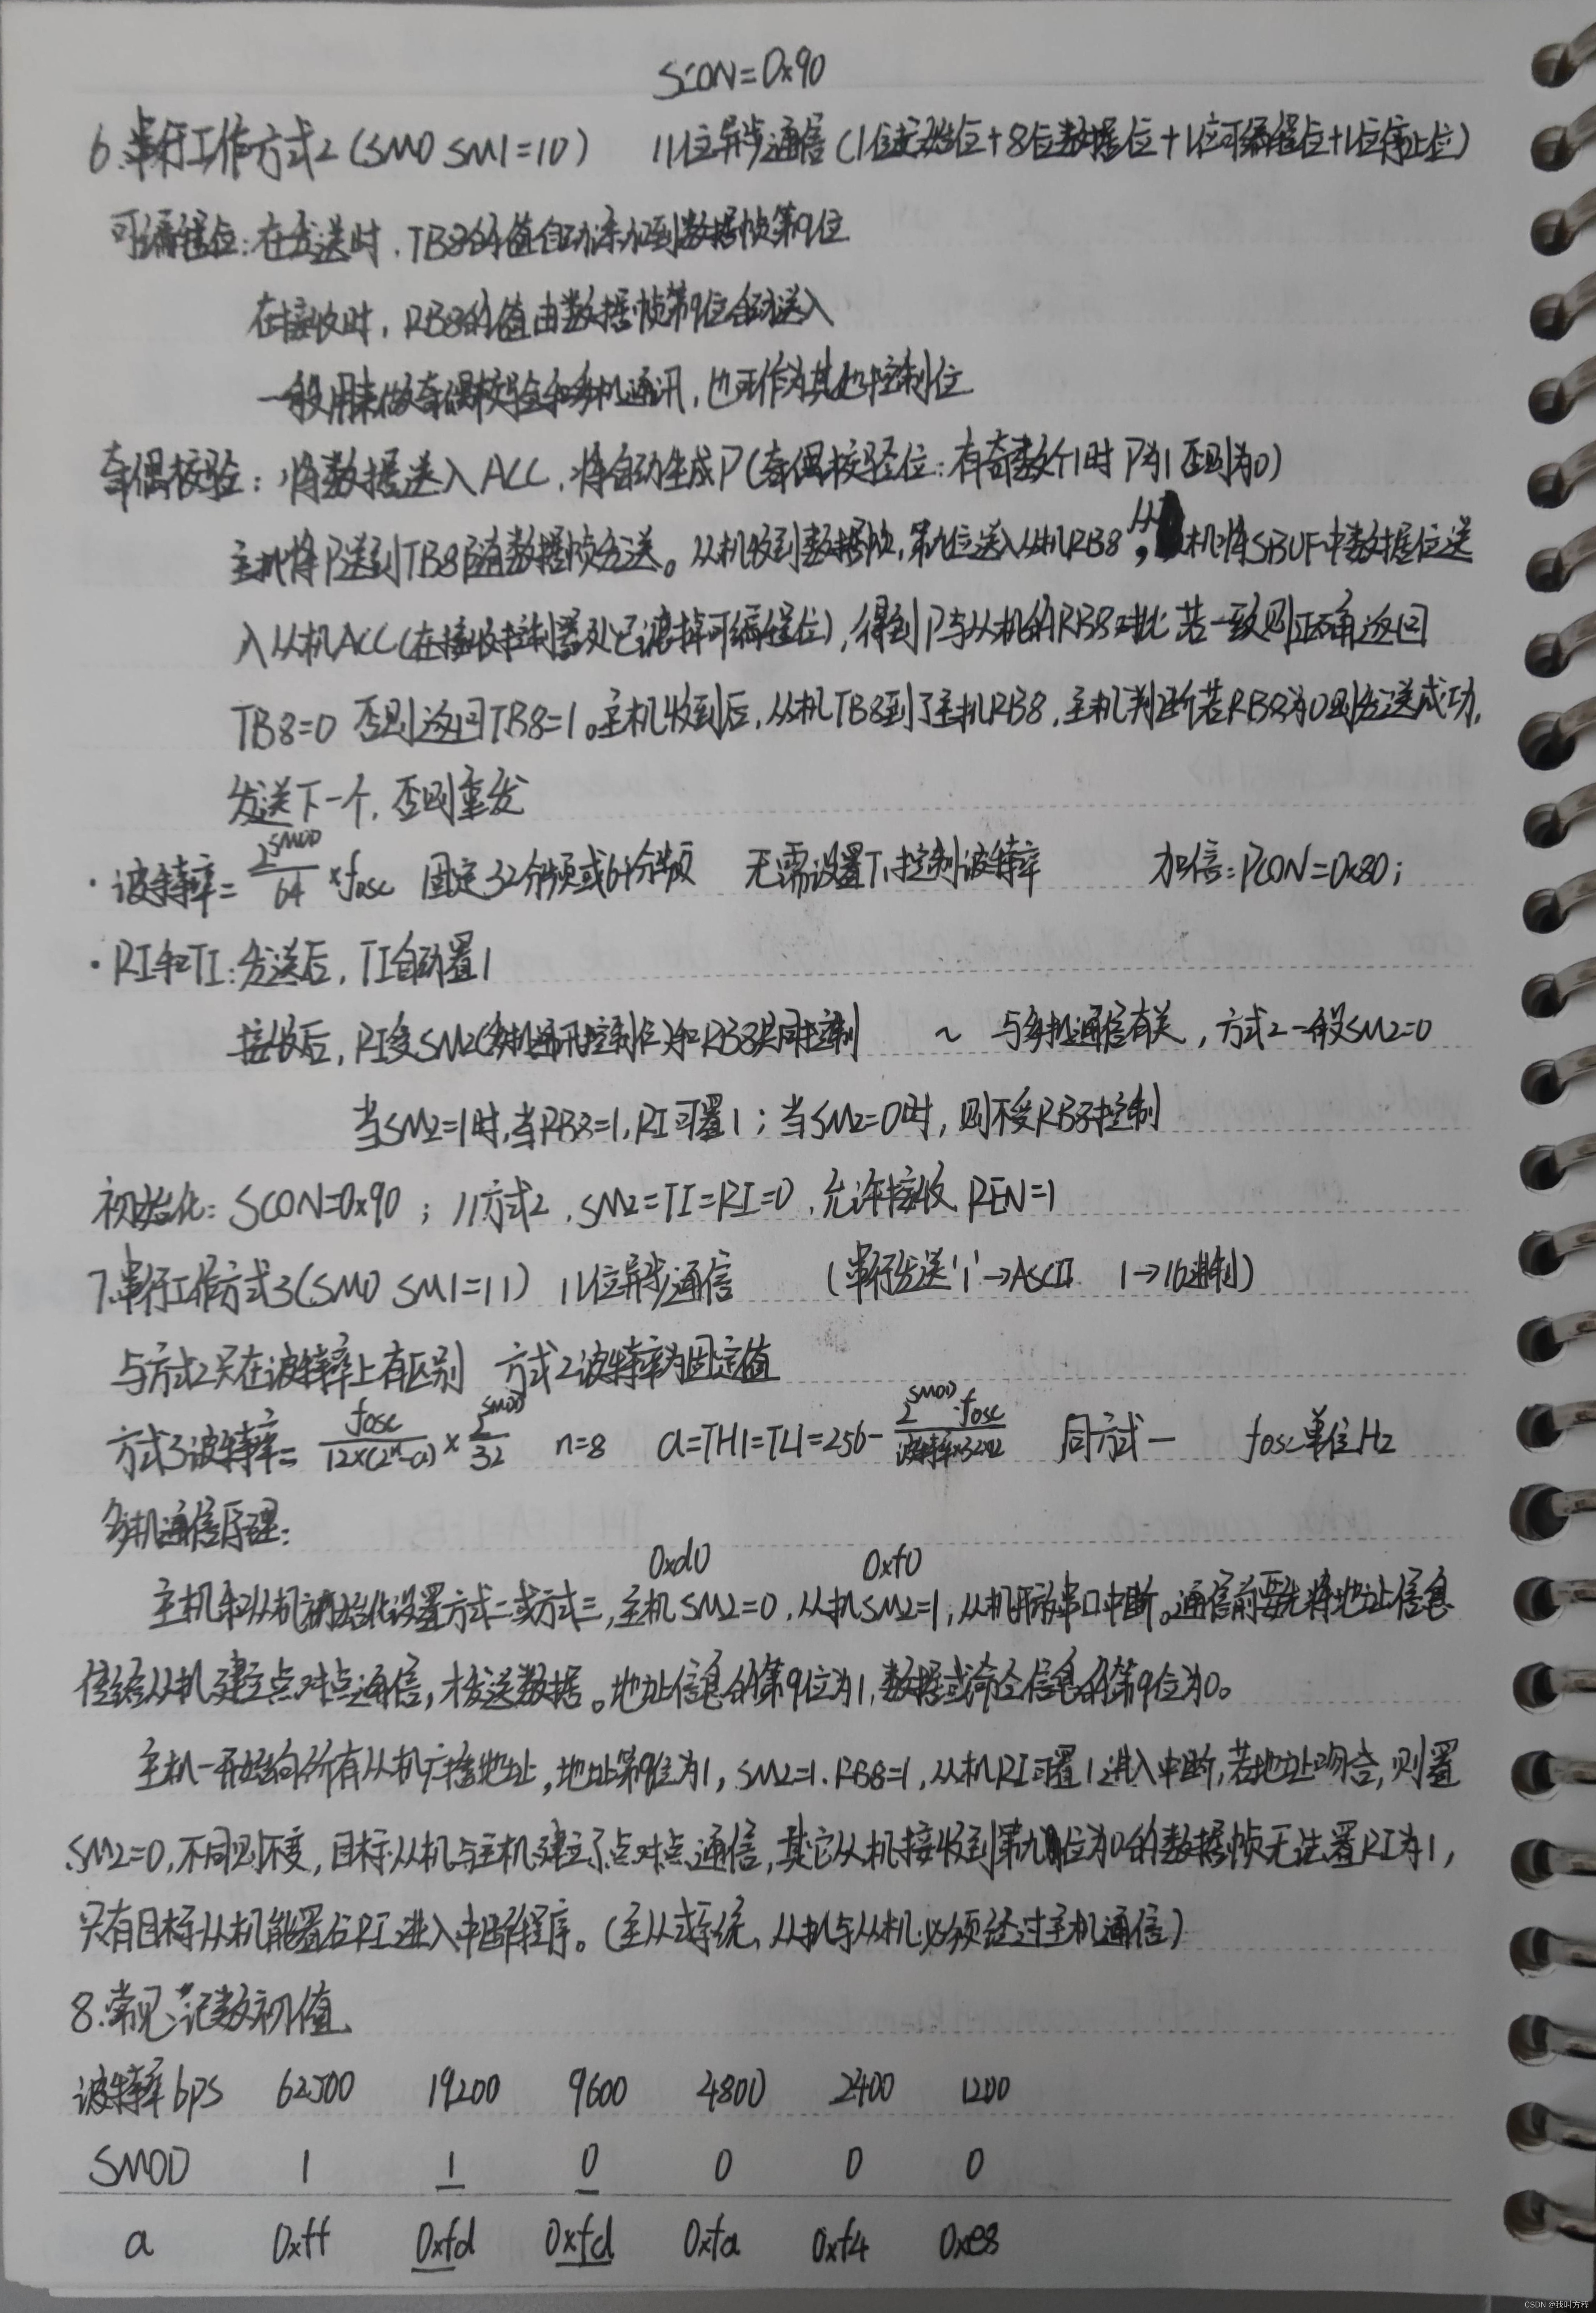 SCON=0x90
6.串行工作方式2(SM0 SM1=10) 11位异步通信(1位起始位+8位数据位+1位可编程位+1位停止位)
可编程位:在发送时,TB8的值自动添加到数据帧第9位
在接收时,RB8的值由数据帧第9位自动送入
一般用来做奇偶校验和多机通讯,也可作为其他控制位
奇偶校验:将数据送入ACC,将自动生成P(奇偶校验位:有奇数个1时P为1否则为0)
主机将P送到TB8随数据帧发送。从机收到数据帧,第九位送入从机RB8,从机将SBUF中数据位送
入从机ACC(在接收控制器处已滤掉可编程位),得到P与从机的RB8对比 若一致则正确返回
TB8=0 否则返回TB8=1。主机收到后,从机TB8到了主机RB8,主机判断若RB8为0则发送成功,
发送下一个,否则重发
·波特率=2^SMOD/64×fosc 固定32分频或64分频 无需设置T1控制波特率 加倍:PCON=0x80;
·RI和TI:发送后,TI自动置1
接收后,RI受SM2(多机通讯控制位)和RB8共同控制 ~ 与多机通信有关,方式2一般SM2=0
当SM2=1时,当RB8=1,RI可置1;当SM2=0时,则不受RB8控制
初始化:SCON=0x90;//方式2,SM2=TI=RI=0,允许接收REN=1
7.串行工作方式3(SM0 SM1=11) 11位异步通信 (串行发送'1'→ASCII 1→16进制)
与方式2只在波特率上有区别 方式2波特率为固定值
方式3波特率=fosc/12×(2^n-a)×2^SMOD/32 n=8 a=TH1=TL1=256-2^SMOD·fosc/波特率×32×12 同方式一 fosc单位Hz
多机通信原理:
0xd0 0xf0
主机和从机初始化设置方式二或方式三,主机SM2=0,从机SM2=1,从机开放串口中断。通信前要先将地址信息
传给从机建立点对点通信,才发送数据。地址信息的第9位为1,数据或命令信息的第9位为0。
主机一开始向所有从机广播地址,地址第9位为1,SM2=1.RB8=1,从机RI可置1进入中断,若地址吻合,则置
SM2=0,不同则不变,目标从机与主机建立了点对点通信,其它从机接收到第九位为0的数据帧无法置RI为1,
只有目标从机能置位RI进入中断程序。(主从式系统、从机与从机必须经过主机通信)
8.常见记数初值
波特率bps 62500 19200 9600 4800 2400 1200
SMOD 1 1 0 0 0 0
a 0xff 0xfd 0xfd 0xfa 0xf4 0xe8
CSDN @我叫方程